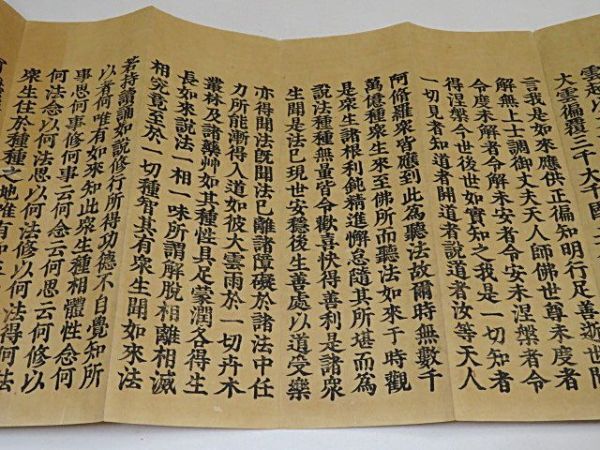 雲起以
大雲徧覆三千大千國土
言我是如來應供正徧知明行足善逝世間
解無上士調御丈夫天人師佛世尊未度者
令度未解者令解未安者令安未涅槃者令
得涅槃今世後世如實知之我是一切知者
一切見者知道者開道者說道者汝等天人
阿脩羅衆皆應到此為聽法故爾時無數千
萬億種衆生來至佛所而聽法如來于時觀
是衆生諸根利鈍精進懈怠隨其所堪而為
說法種種無量皆令歡喜快得善利是諸衆
生聞是法已現世安穩後生善處以道受樂
亦得聞法既聞法已離諸障礙於諸法中任
力所能漸得入道如彼大雲雨於一切卉木
叢林及諸藥艸如其種性具足蒙潤各得生
長如來說法一相一味所謂解脫相離相滅
相究竟至於一切種智其有衆生聞如來法
若持讀誦如說修行所得功德不自覺知所
以者何唯有如來知此衆生種相體性念何
事思何事修何事云何念云何思云何修以
何法念以何法思以何法修以何法得何法
衆生住於種種之地唯有如